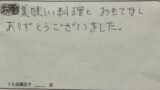 美味しい料理と、おもてなし
ありがとうございました。